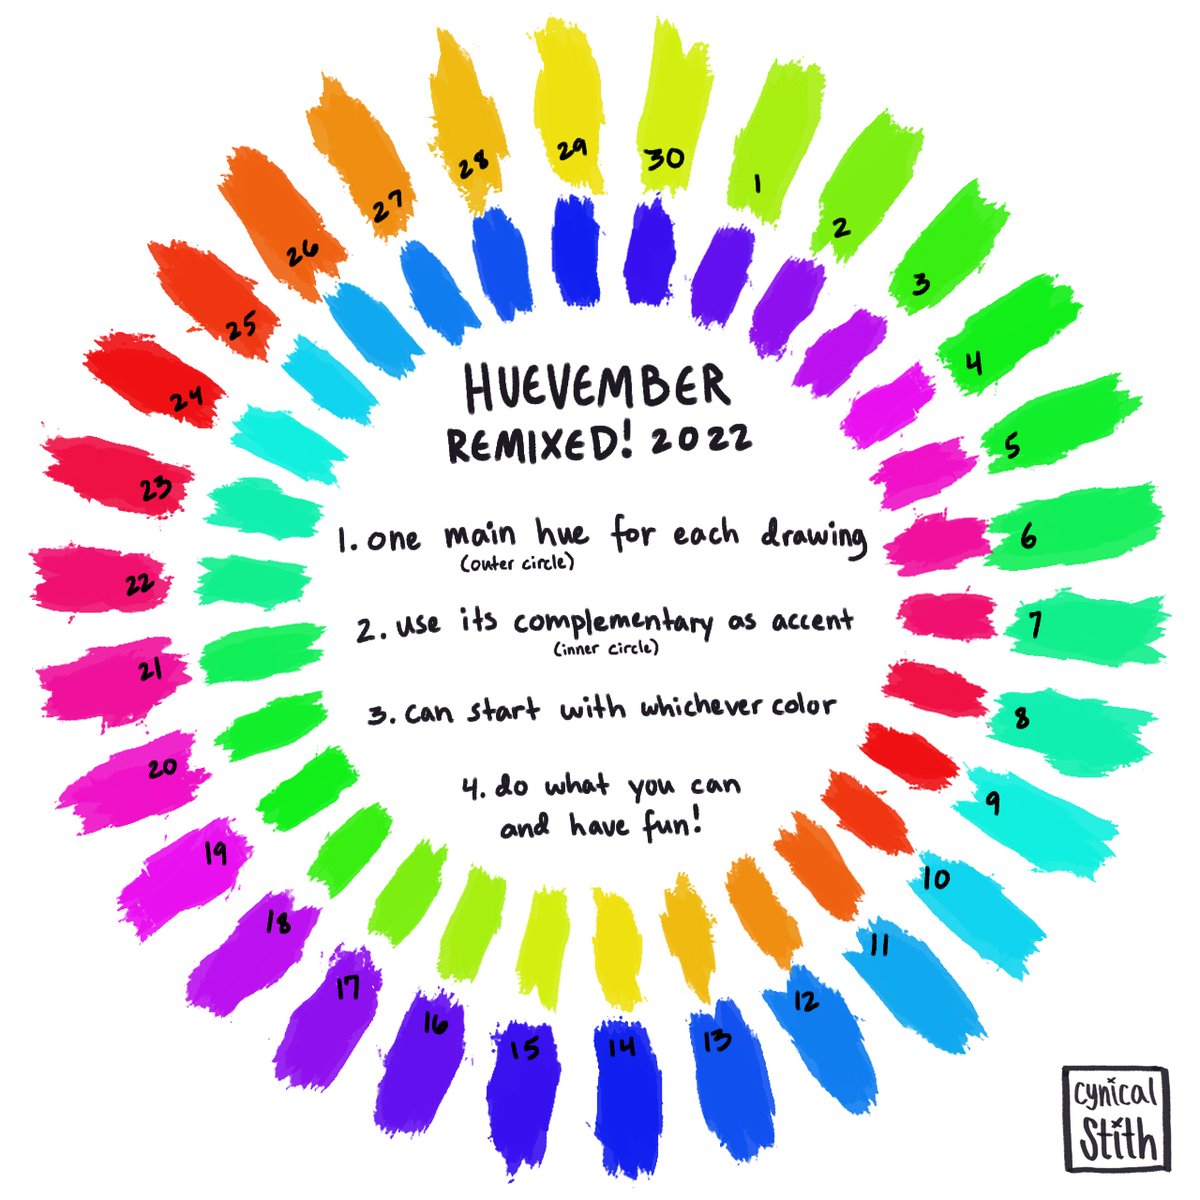 HUEVEMBER
REMIXED! 2022
1. one main hue for each drawing
(outer circle)
2. use its complementary as accent
(inner circle)
3. can start with whichever color
4. do what you can
and have fun!
1
2
3
4
5
6
7
8
9
10
11
12
13
14
15
16
17
18
19
20
21
22
23
24
25
26
27
28
29
30
cynical
Stith